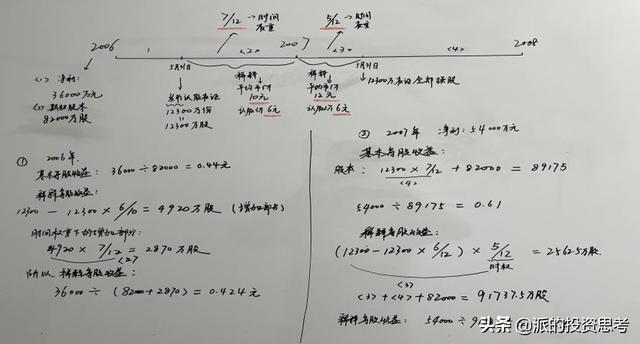 7/12 → 时间权重
5/12 → 时间权重
2006
1
<2>
2007
<3>
<4>
2008
5月31日
5月31日
<1> 净利:
36000万元
<2> 期初股本
82000万股
发行认股权证
12300万份
12300万股
稀释
平均市价
10元
认股价 6元
稀释
平均市价
12元
认股价 6元
12300万份全部换股
① 2006年.
基本每股收益: 36000÷82000=0.44元
稀释每股收益:
12300 - 12300 × 6/10 = 4920万股 (增加部分)
时间权重下的增加部分:
4920 × 7/12 = 2870万股
<2>
所以 稀释每股收益:
36000 ÷ (8200+2870) = 0.424元
② 2007年 净利: 54000万元
基本每股收益:
股本: 12300 × 7/12 + 82000 = 89175
<4>
54000 ÷ 89175 = 0.61
稀释每股收益:
(12300-12300 × 6/12) × 5/12 = 2562.5万股
时权
<3>
<3> + <4> + 82000 = 91737.5万股
稀释每股收益: 54000 ÷ 9
头条 @派的投资思考